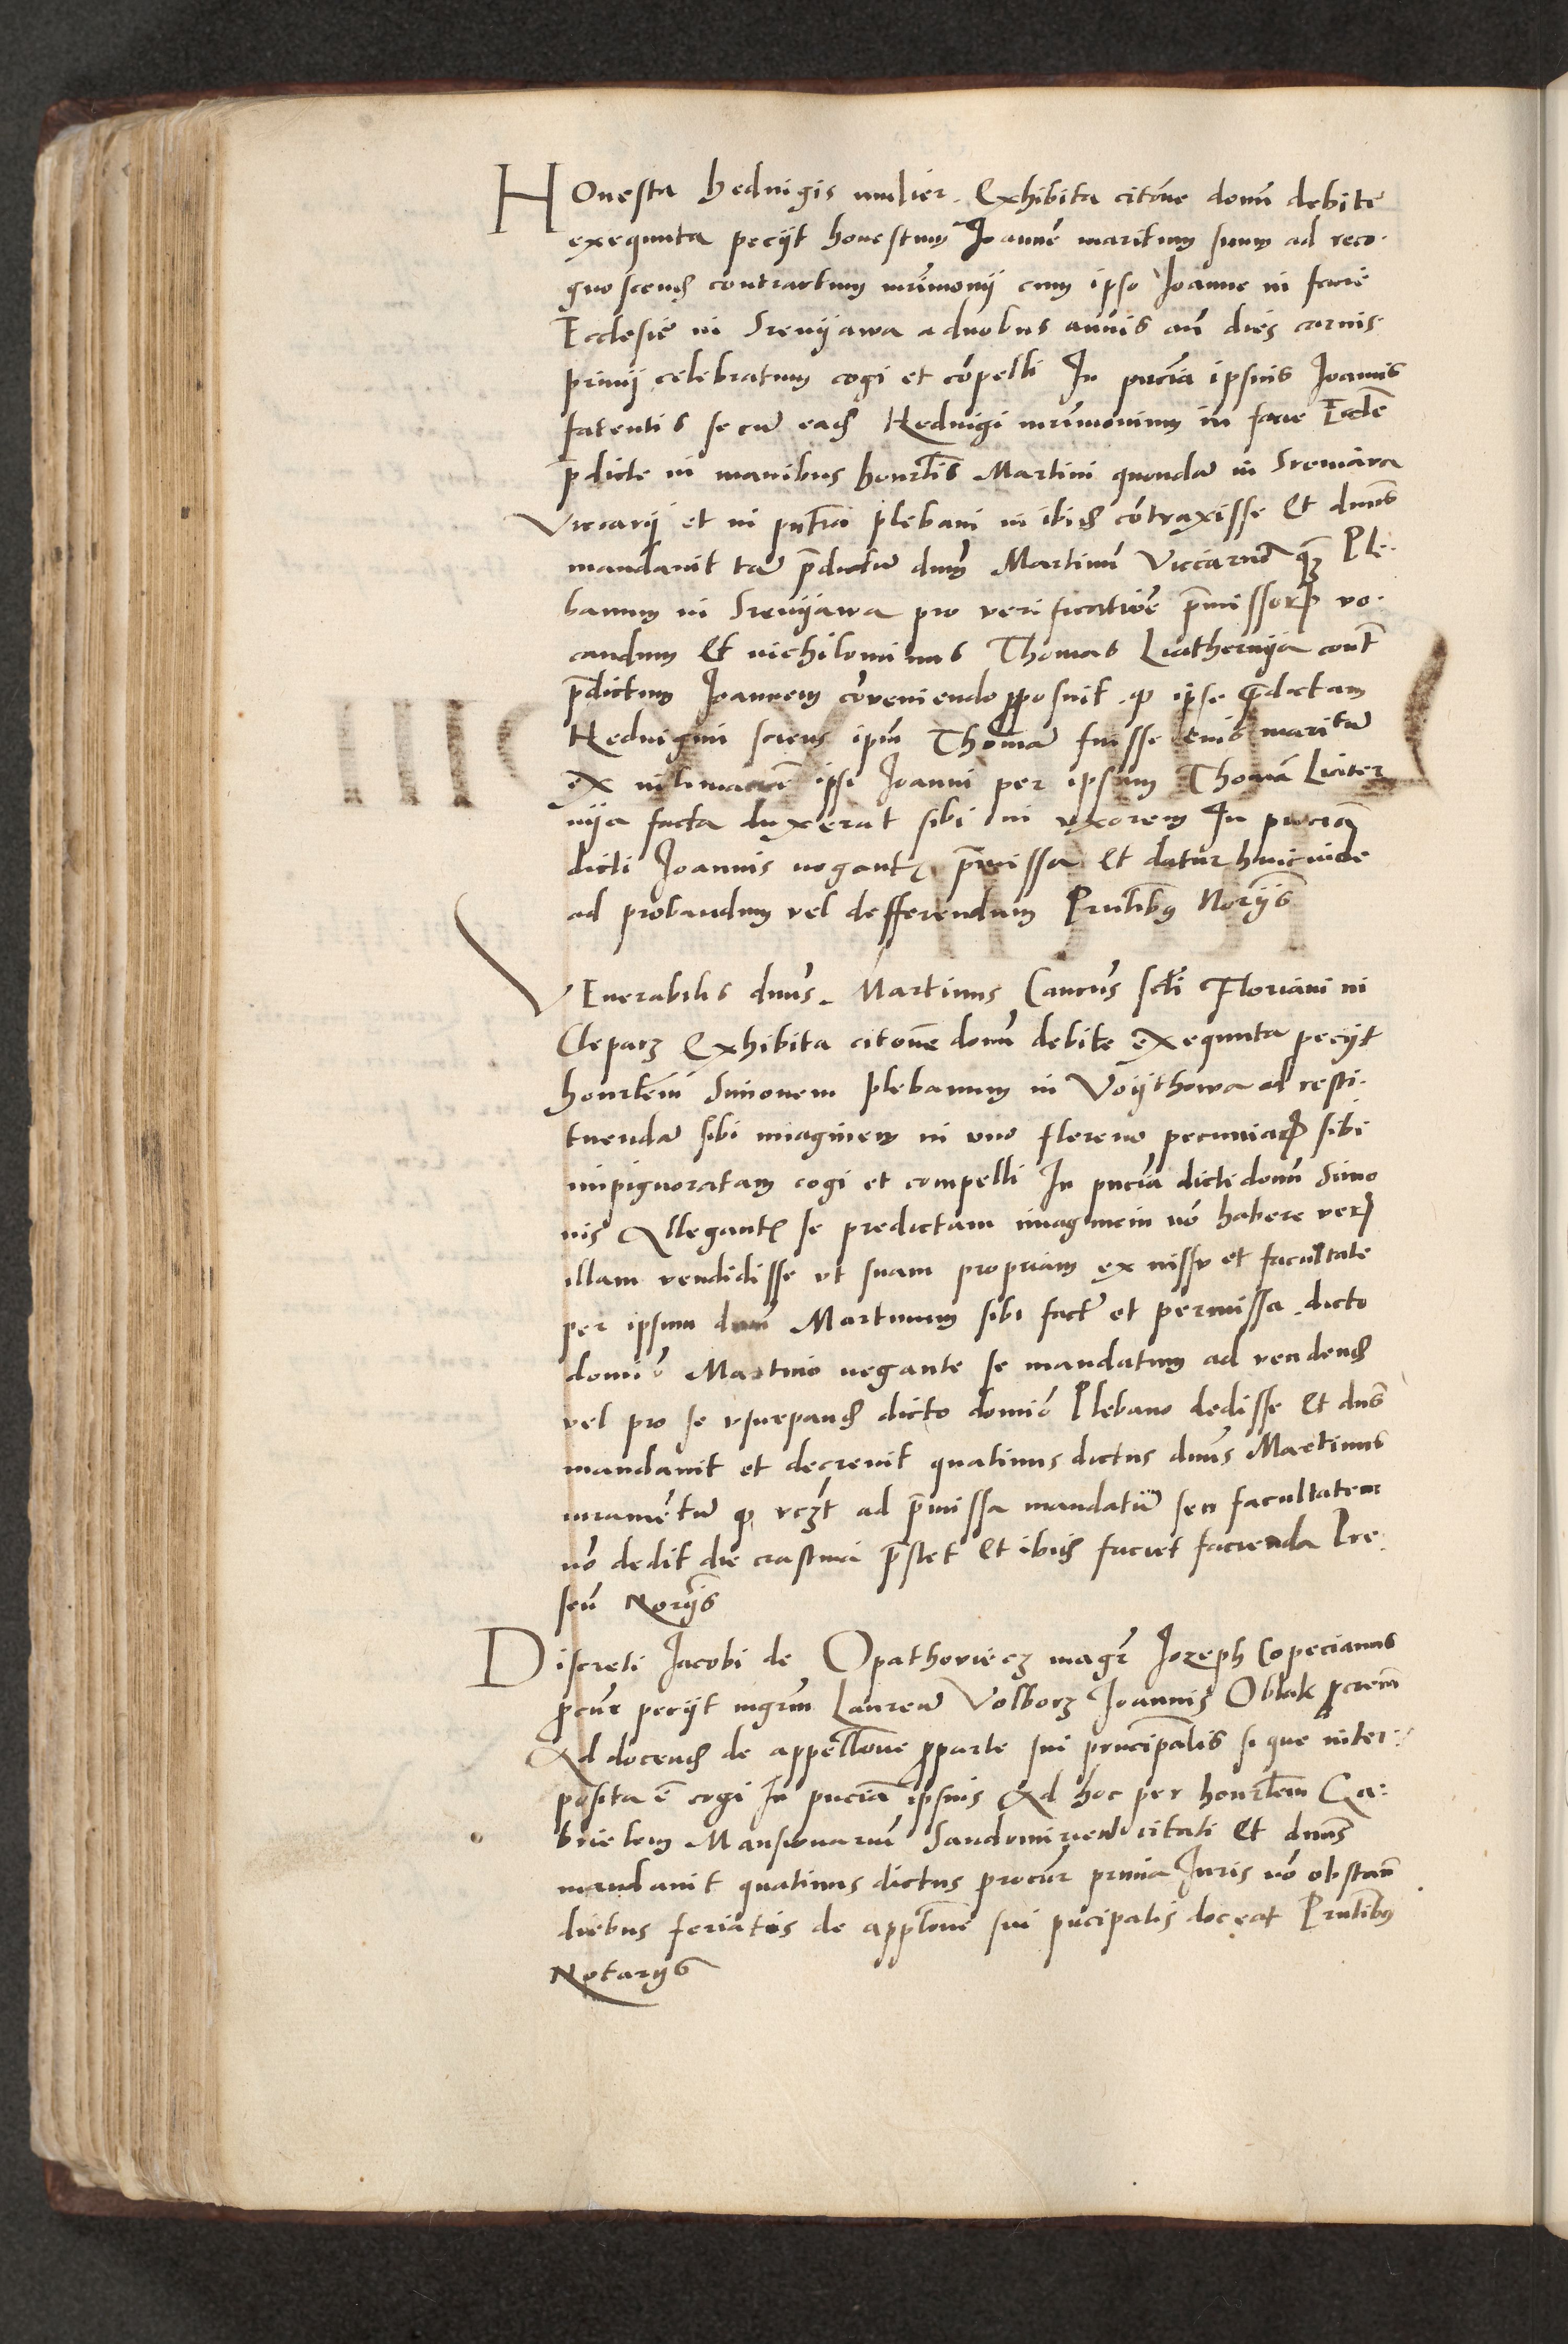 Honesta hedvigis mulier. Exhibita citōne domī debite
exequuta peciit honestum Joannē maritum suum ad reco-
gnoscend contractum mr̄imonij cum ipso Joanne in facie
Ecclesie in Sreniyawa a duobus annis an̄ dies carnis-
privij celebratum cogi et cōpelli In pn̄cia ipsius Joannis
fatentis se cū ead Hedvigi mr̄imonium in facie Eccl̄e
p̄dicte in manibus honrlis Martini quondā in Sreniava
Viccarij et in pn̄tia plebani in ibid cōtraxisse Et dnus
mandavit tā p̄dictū dnm̄ Martinū Viccariū q̄ Ple-
banum in Sreniyawa pro verificatiōe p̄missor vo-
candum Et nichilominus Thomas Liathernya cont̄
p̄dictum Joannem cōveniendo proposuit q ipse p̄dictam
Hedvigim sciens ipm̄ Thomā fuisse eius maritū
ex intimaciōe ipsi Joanni per ipsum Thomā Liater
nya facta duxerat sibi in uxorem In pn̄ciā
dicti Joannis negant p̄missa Et datur huic inde
ad probandum vel defferendum Pn̄tibus Norijs
Venerabilis dnus. Martinus Cancus scti Floriani in
Cleparz Exhibita citōne domī debite exequuta peciit
honrlem Simonem plebanum in Voythowa ad resti-
tuendā sibi imaginem in uno floreno pecuniar sibi
impignoratam cogi et compelli In pn̄cia dicti domī Simo
nis Allegant se predictam imaginem nō habere ver
illam vendidisse ut suam propriam ex nissu et facultate
per ipsum dnm̄ Martinum sibi fact et permissa dicto
domiō Martino negante se mandatum ad vendend
vel pro se usurpand dicto domiō Plebano dedisse Et dns
mandavit et decrevit quatinus dictus dnus Martinus
iuramētū q ad p̄missa mandatū seu facultatem
nō dedit die crastina p̄stet Et ibid faciet facienda Pre
sen Norijs
Discreti Jacobi de Opathoviecz magr Jozeph Copecianus
procur peciit mgrm Laurenū Volborz Joannis Oblak procrem
Ad docend de appellōne pro parte sui principalis si que inter-
posita ē cogi In pn̄cia ipsius Ad hoc per honrlem Ga-
brielem Mansionarium Sandomirien citati Et dnus
mandavit quatinus dictus procur prima Juris nō obstan
diebus feriatis de applōne sui pn̄cipalis doceat Pn̄tibus
Notarijs